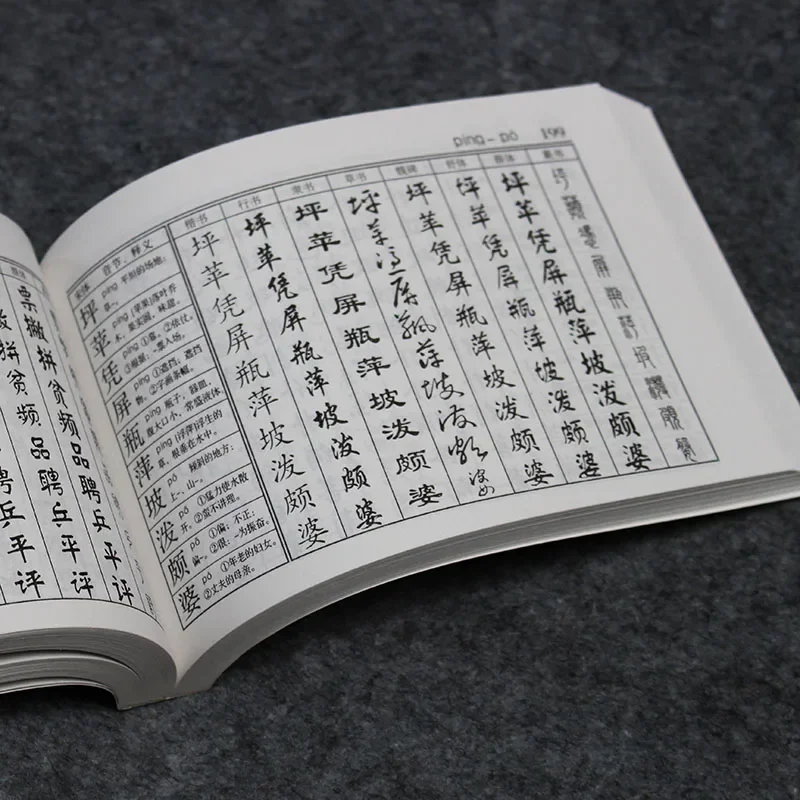 颜体
票撇拼贫频品聘乒平评
píng – pó 199
宋体 音节、释义 楷书 行书 隶书 草书 魏碑 舒体 颜体 篆书
坪 píng 平坦的场地：
草~。
坪 坪 坪 坪 坪 坪 坪
苹 píng (苹果)落叶乔
木，果实圆，味甜。
苹 苹 苹 苹 苹 苹 苹
凭 píng ①靠。②依仗。
③根据：~票入场。
凭 凭 凭 凭 凭 凭 凭
屏 píng ①遮挡，遮挡
物。②字画条幅。
屏 屏 屏 屏 屏 屏 屏
瓶 píng 瓶子，器皿，
腹大口小，常盛液体。
瓶 瓶 瓶 瓶 瓶 瓶 瓶
萍 píng (浮萍)浮生的
草，根垂在水中。
萍 萍 萍 萍 萍 萍 萍
坡 pō 倾斜的地方：
上~，山~。
坡 坡 坡 坡 坡 坡 坡
泼 pō ①猛力使水散
开。②蛮不讲理。
泼 泼 泼 泼 泼 泼 泼
颇 pō ①偏；不正：
偏~。②很：~为振奋。
颇 颇 颇 颇 颇 颇 颇
婆 pó ①年老的妇女。
②丈夫的母亲。
婆 婆 婆 婆 婆 婆 婆